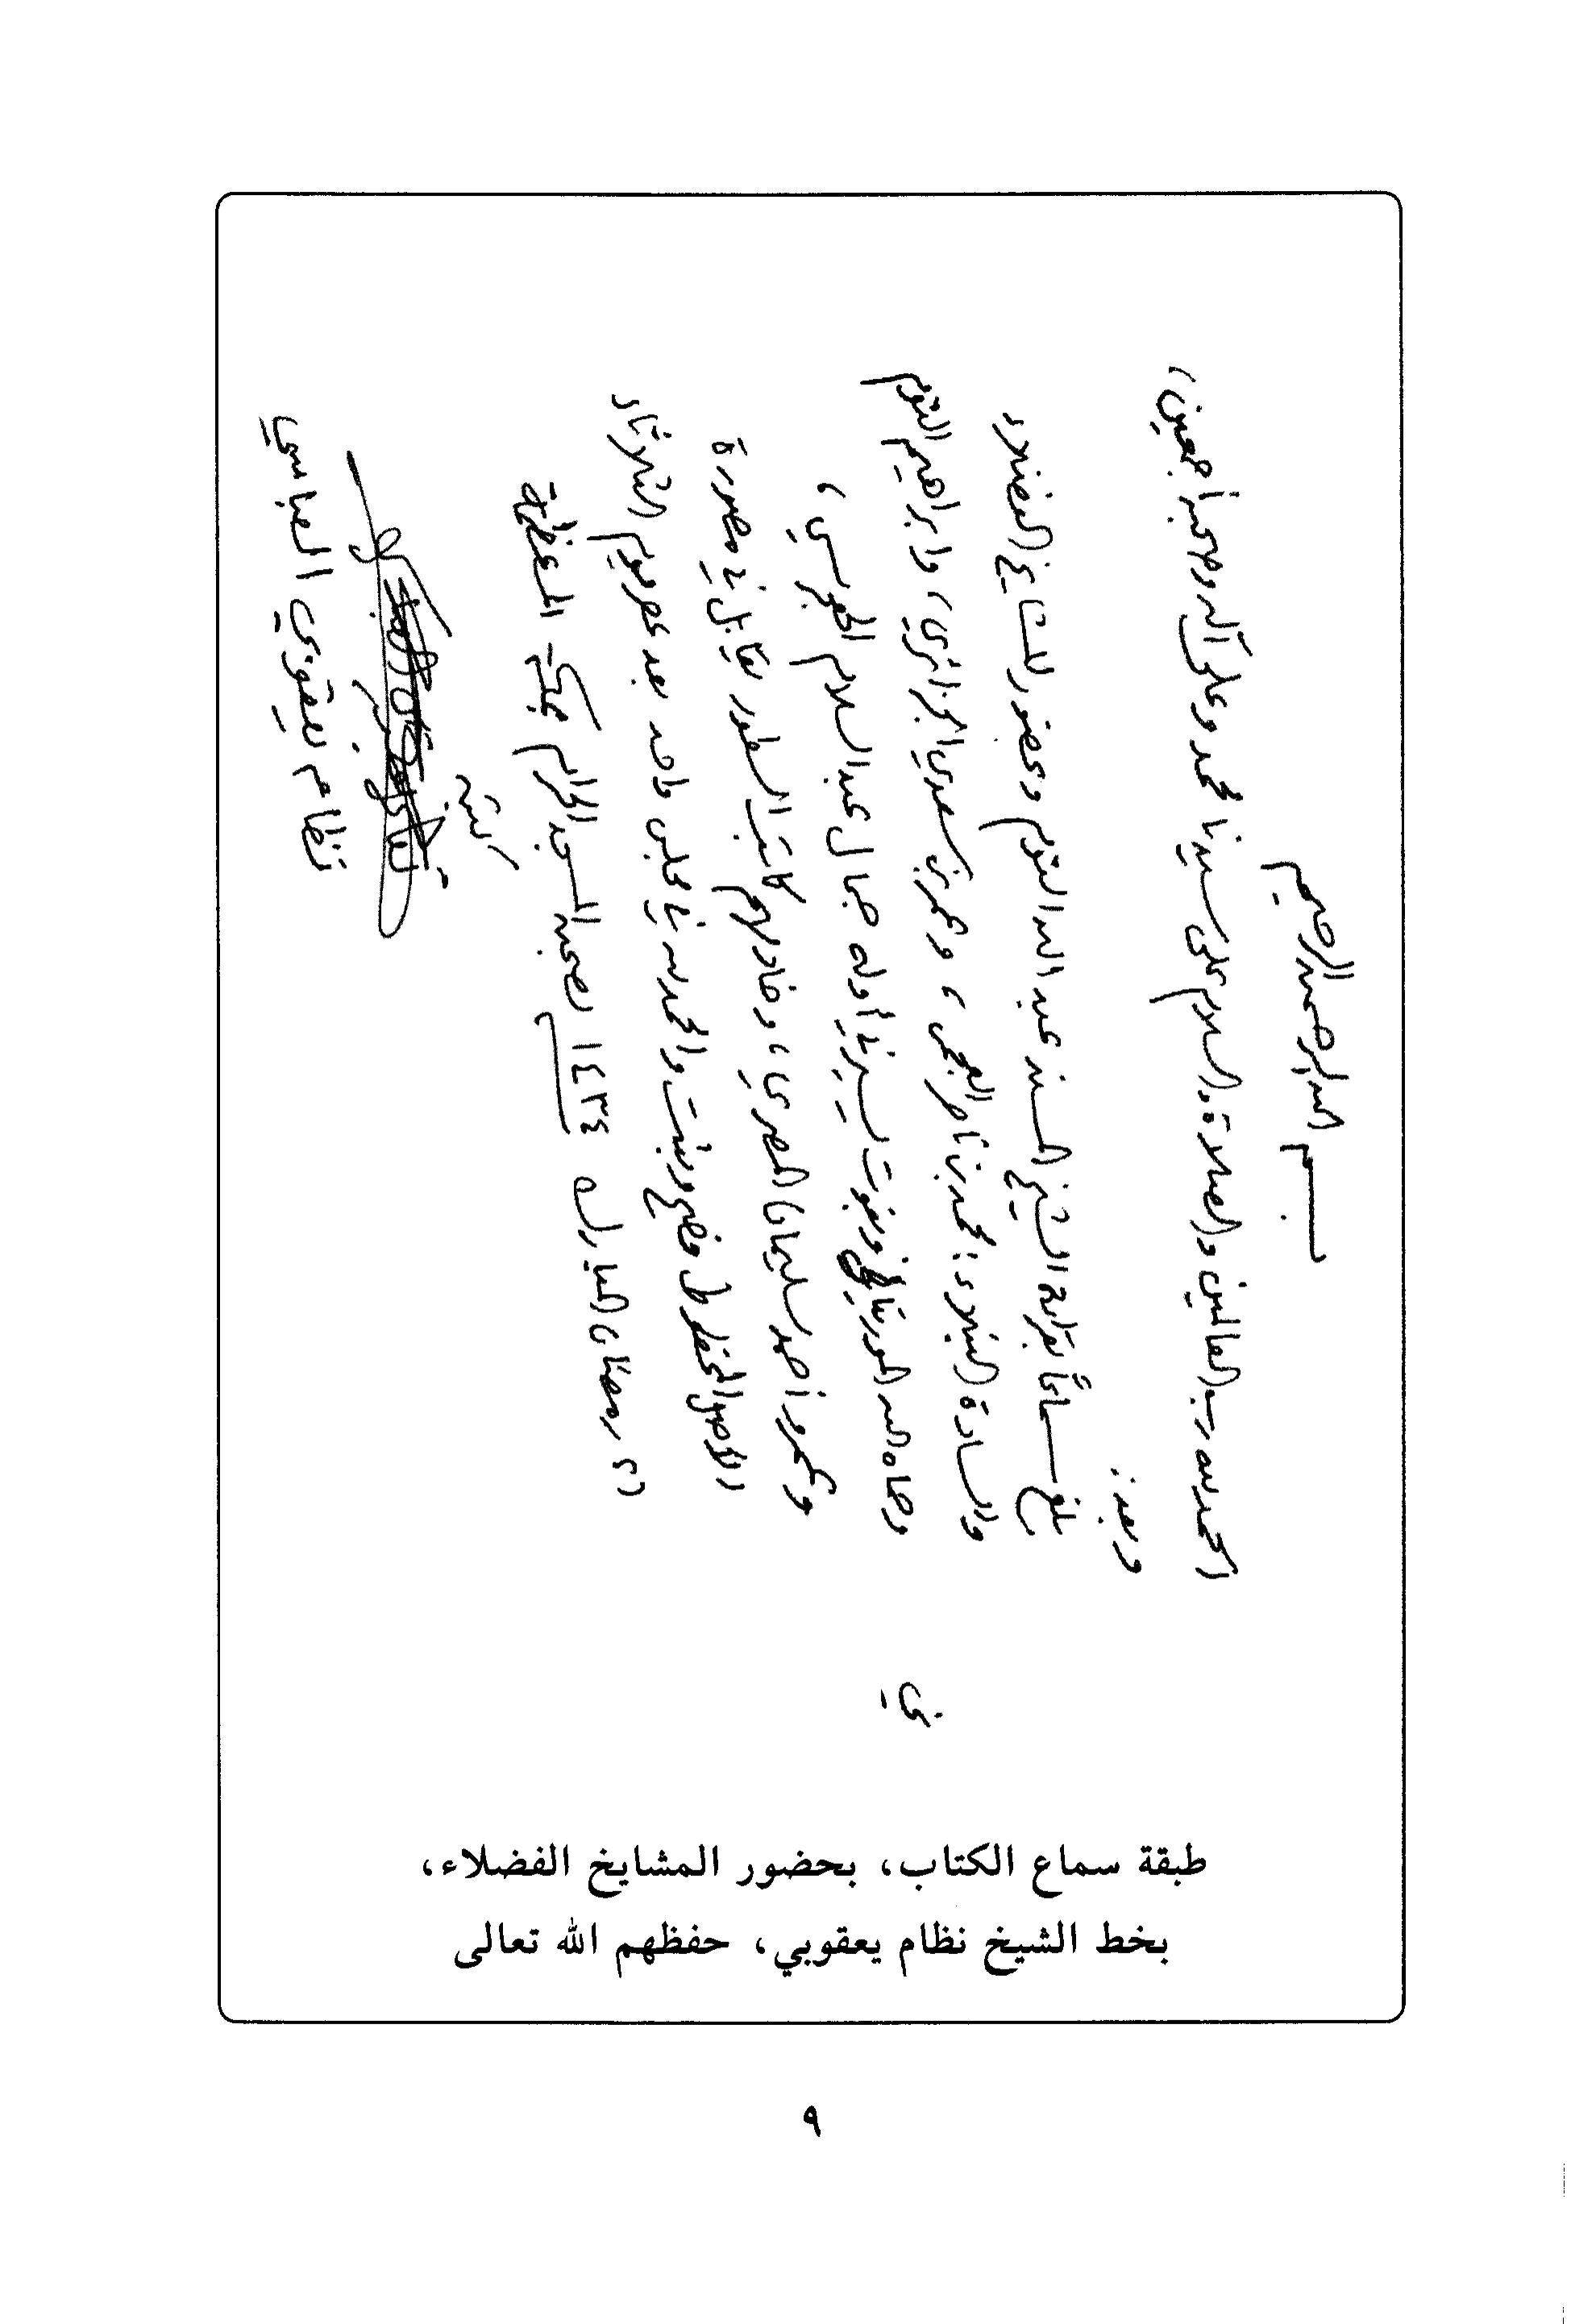 بسم الله الرحمن الرحيم
الحمد لله رب العالمين والصلاة والسلام على سيدنا محمد وعلى آله وصحبه أجمعين،
وبعد:
بلغ سماعًا بقراءة الشيخ المسند عبد الله التوم وبحضور المشايخ الفضلاء
والسادة النبلاء: محمد بن ناصر العجمي، و سعدي الجزائري، وإبراهيم التوم
وحماه الله الموريتاني وبفوت يسير في أوله جمال عبد السلام الهجرسي،
ومحمد أحمد سليمان المصري، وخادمهم كاتب السطور يقابل في مصورة
الأصل المخطوط فصح وثبت والحمد لله في مجلس واحد بعد عصر يوم الثلاثاء
٢١ رمضان المبارك ١٤٣٤ بصحن المسجد الحرام بمكة المعظمة
كتبه
نظام يعقوبي العباسي
في
طبقة سماع الكتاب، بحضور المشايخ الفضلاء،
بخط الشيخ نظام يعقوبي، حفظهم الله تعالى
٩